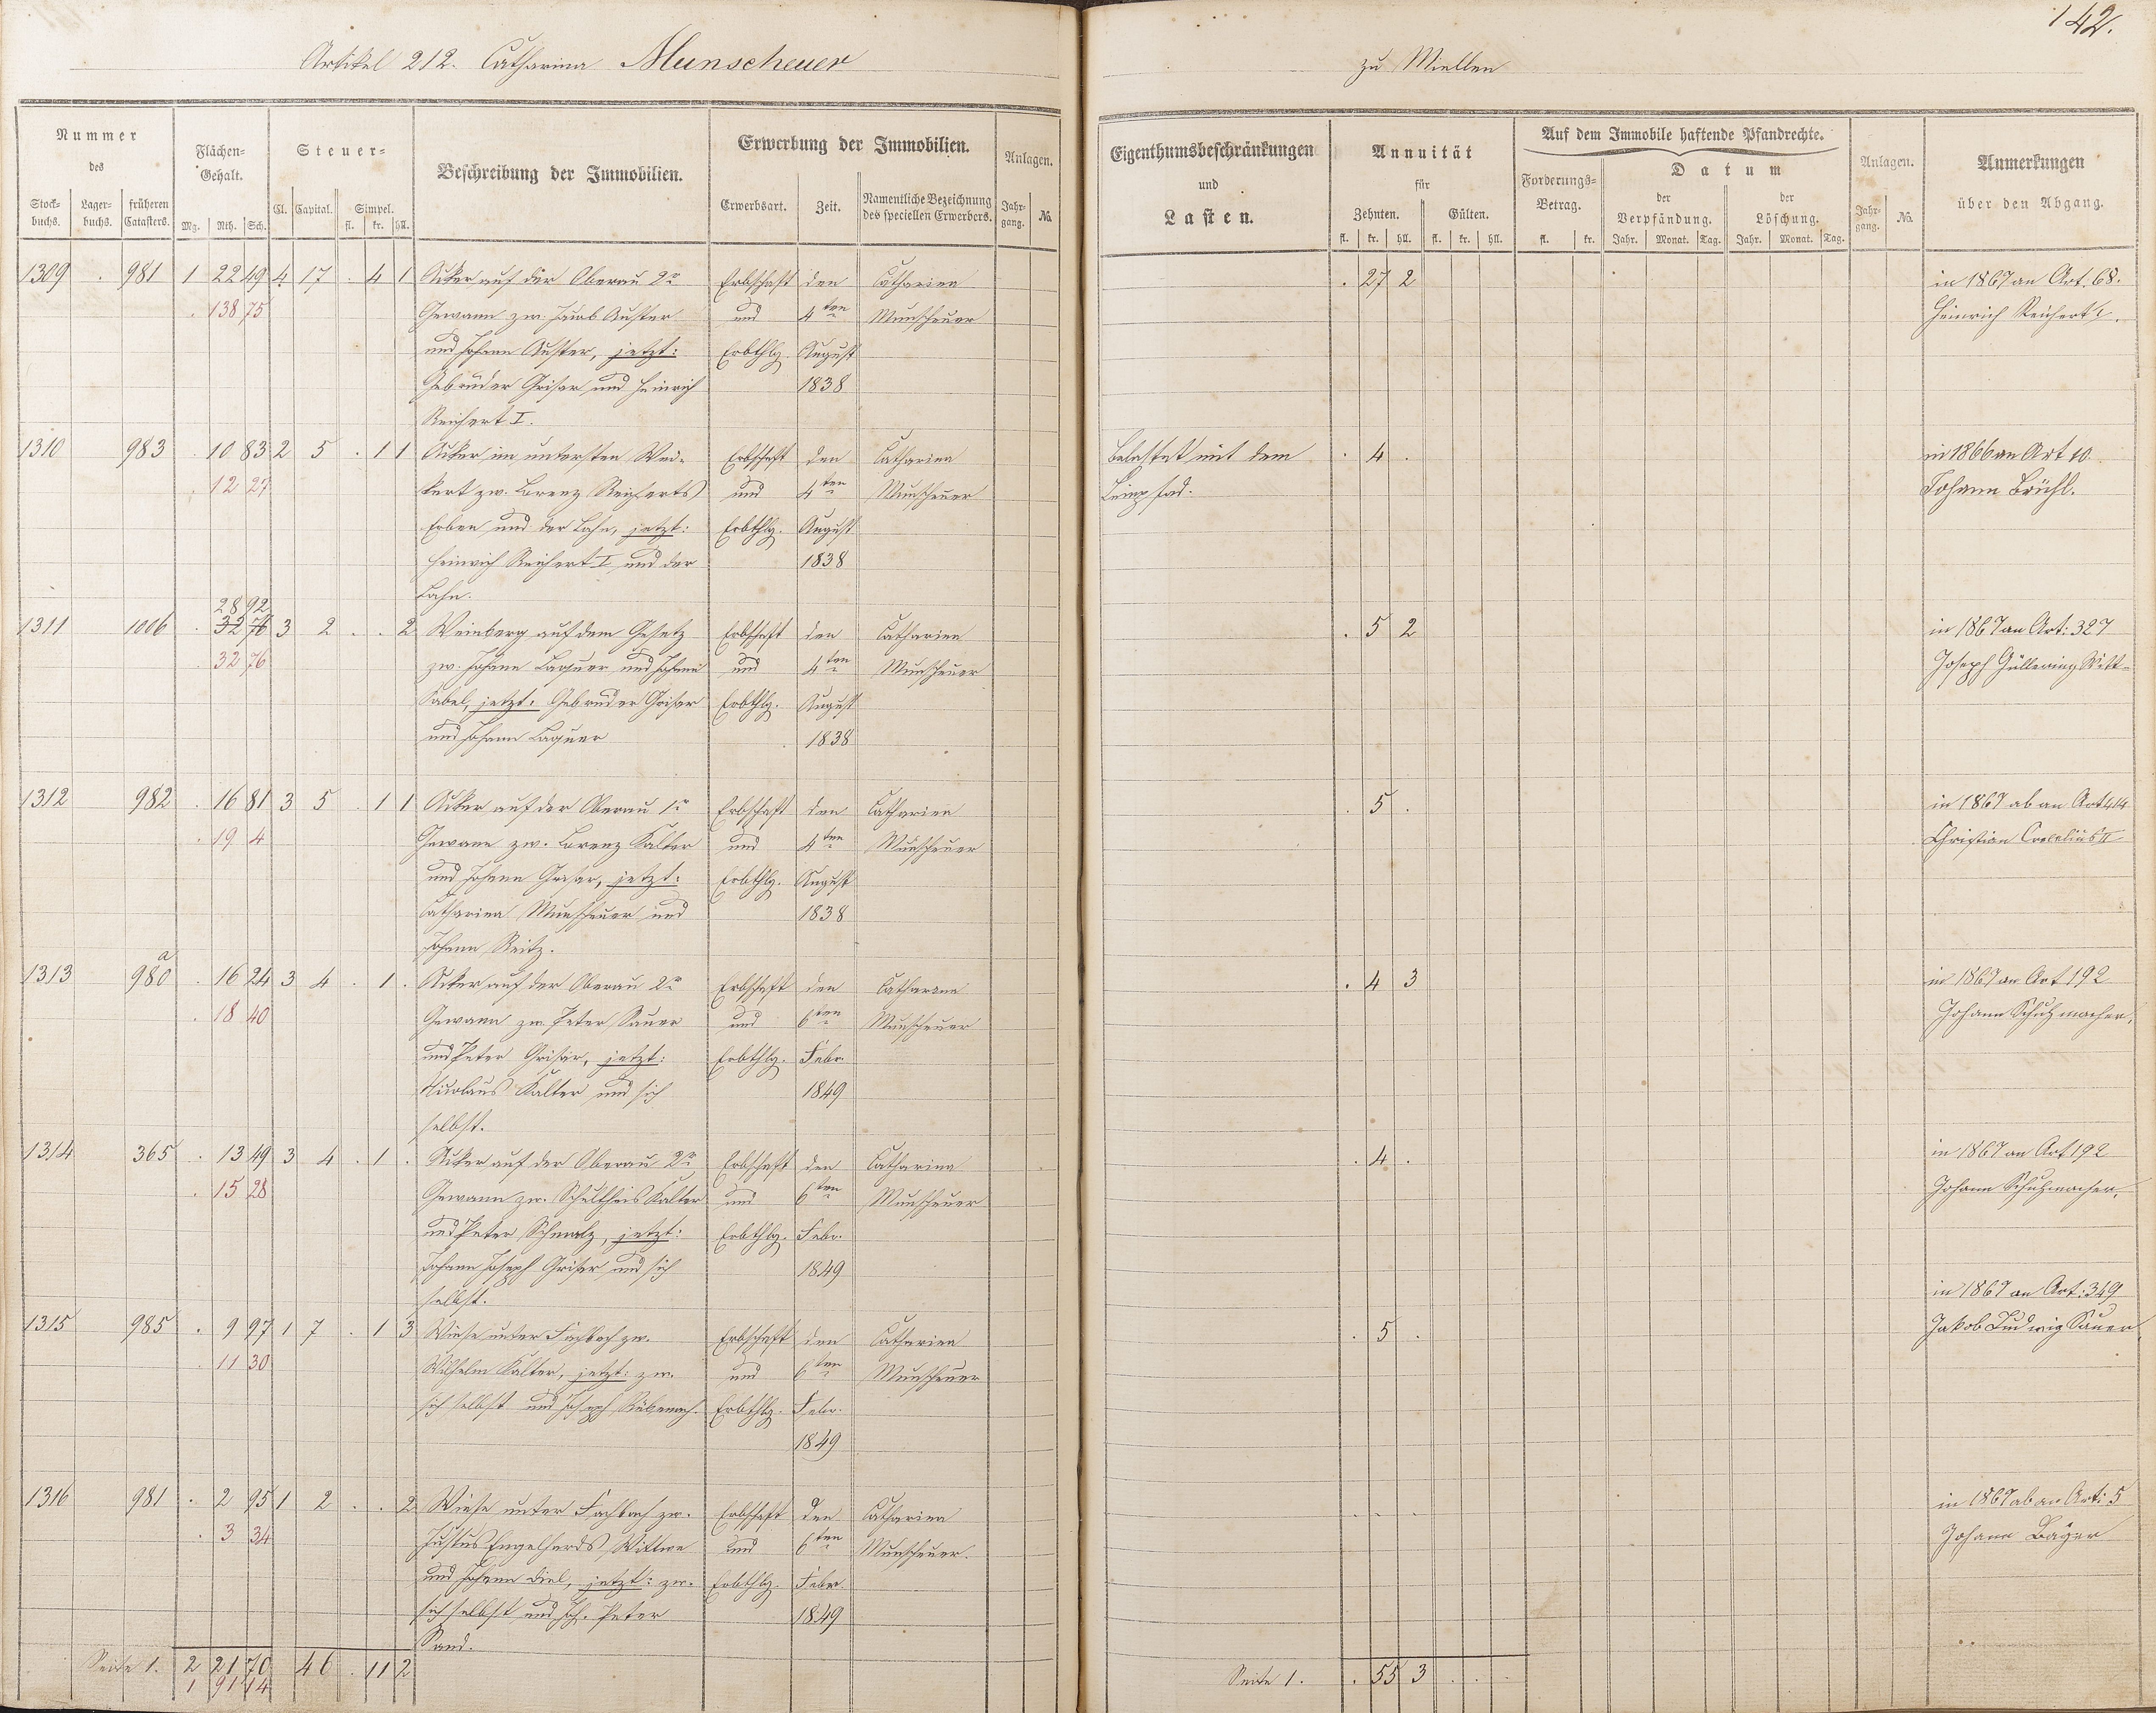 142.
Artikel 212. Catharina Munscheuer
zu Miellen
Nummer des
Stock-buchs. Lager-buchs. früheren Catasters.
Flächen-Gehalt.
Mg. Rth. Sch.
Steuer-
Cl. Capital. Simpel.
fl. kr. hll.
Beschreibung der Immobilien.
Erwerbung der Immobilien.
Erwerbsart. Zeit. Namentliche Bezeichnung des speciellen Erwerbers.
Anlagen.
Jahr-gang. No.
Eigenthumsbeschränkungen
und
Lasten.
Annuität
für
Zehnten. Gülten.
fl. kr. hll. fl. kr. hll.
Auf dem Immobile haftende Pfandrechte.
Forderungs-Betrag.
fl. kr.
Datum
der Verpfändung. der Löschung.
Jahr. Monat. Tag. Jahr. Monat. Tag.
Anlagen.
Jahr-gang. No.
Anmerkungen
über den Abgang.
1309 . 981 1 22 49 4 17 . 4 1 Acker auf der Oberau 2r Erbschaft den Catharina . 27 2 in 1867 an Art. 68.
. 138 75 Gewann zw. Jacob Auster und 4ten Munscheuer Heinrich Reichert I.
und Johann Auster, jetzt: Erbthlg. August
Gebrüder Grisar und Heinrich 1838
Reichert I.
1310 983 . 10 83 2 5 . 1 1 Acker im untersten Wei- Erbschaft den Catharina Belastet mit dem . 4 . in 1866 an Art 10.
. 12 27 kert zw. Lorenz Reicherts und 4ten Munscheuer Leinpfad. Johann Brühl.
Erben und der Lahn, jetzt: Erbthlg. August
Heinrich Reichert I und der 1838
Lahn.
28 92
1311 1006 . 32 76 3 2 . . 2 Weinberg auf dem Gesetz Erbschaft den Catharina . 5 2 in 1867 an Art: 327
. 32 76 zw. Johann Laquer und Johann und 4ten Munscheuer Joseph Güllering Witt-
Sabel, jetzt: Gebrüder Grisar Erbthlg. August
und Johann Laquer 1838
1312 982 . 16 81 3 5 . 1 1 Acker auf der Oberau 1r Erbschaft den Catharina . 5 . in 1867 ab an Art 414
. 19 4 Gewann zw. Lorenz Kalter und 4ten Munscheuer Christian Crecelius II
und Johann Grisar, jetzt: Erbthlg. August
Catharina Munscheuer und 1838
Johann Reitz.
1313 980a . 16 24 3 4 . 1 . Acker auf der Oberau 2r Erbschaft den Catharina . 4 3 in 1867 an Art 192
. 18 40 Gewann zw. Peter Sauer und 6ten Munscheuer Johann Schuhmacher.
und Peter Grisar, jetzt: Erbthlg. Febr.
Nicolaus Kalter und sich 1849
selbst.
1314 365 . 13 49 3 4 . 1 . Acker auf der Oberau 2r Erbschaft den Catharina . 4 . in 1867 an Art 192
. 15 28 Gewann zw. Schultheis Kalter und 6ten Munscheuer Johann Schuhmacher.
und Peter Schmalz, jetzt: Erbthlg. Febr.
Johann Joseph Grisar und sich 1849
selbst.
in 1867 an Art: 349
1315 985 . 9 97 1 7 . 1 3 Wiese unter Fachbach zw. Erbschaft den Catharina . 5 . Jakob Ludwig Sauer
. 11 30 Wilhelm Kalter, jetzt: zw. und 6ten Munscheuer
sich selbst und Joseph Erbthlg. Febr.
1849
1316 981 . 2 95 1 2 . . 2 Wiese unter Fachbach zw. Erbschaft den Catharina . . . in 1867 ab an Art: 5
. 3 34 Justus Engelherds Wittwe und 6ten Munscheuer. Johann Bäyer
und Johann Diel, jetzt: zw. Erbthlg. Febr.
sich selbst und Joh. Peter 1849
Sand.
Seite 1. 2 21 70 46 . 11 2 Seite 1. . 55 3 . . .
1 91 14